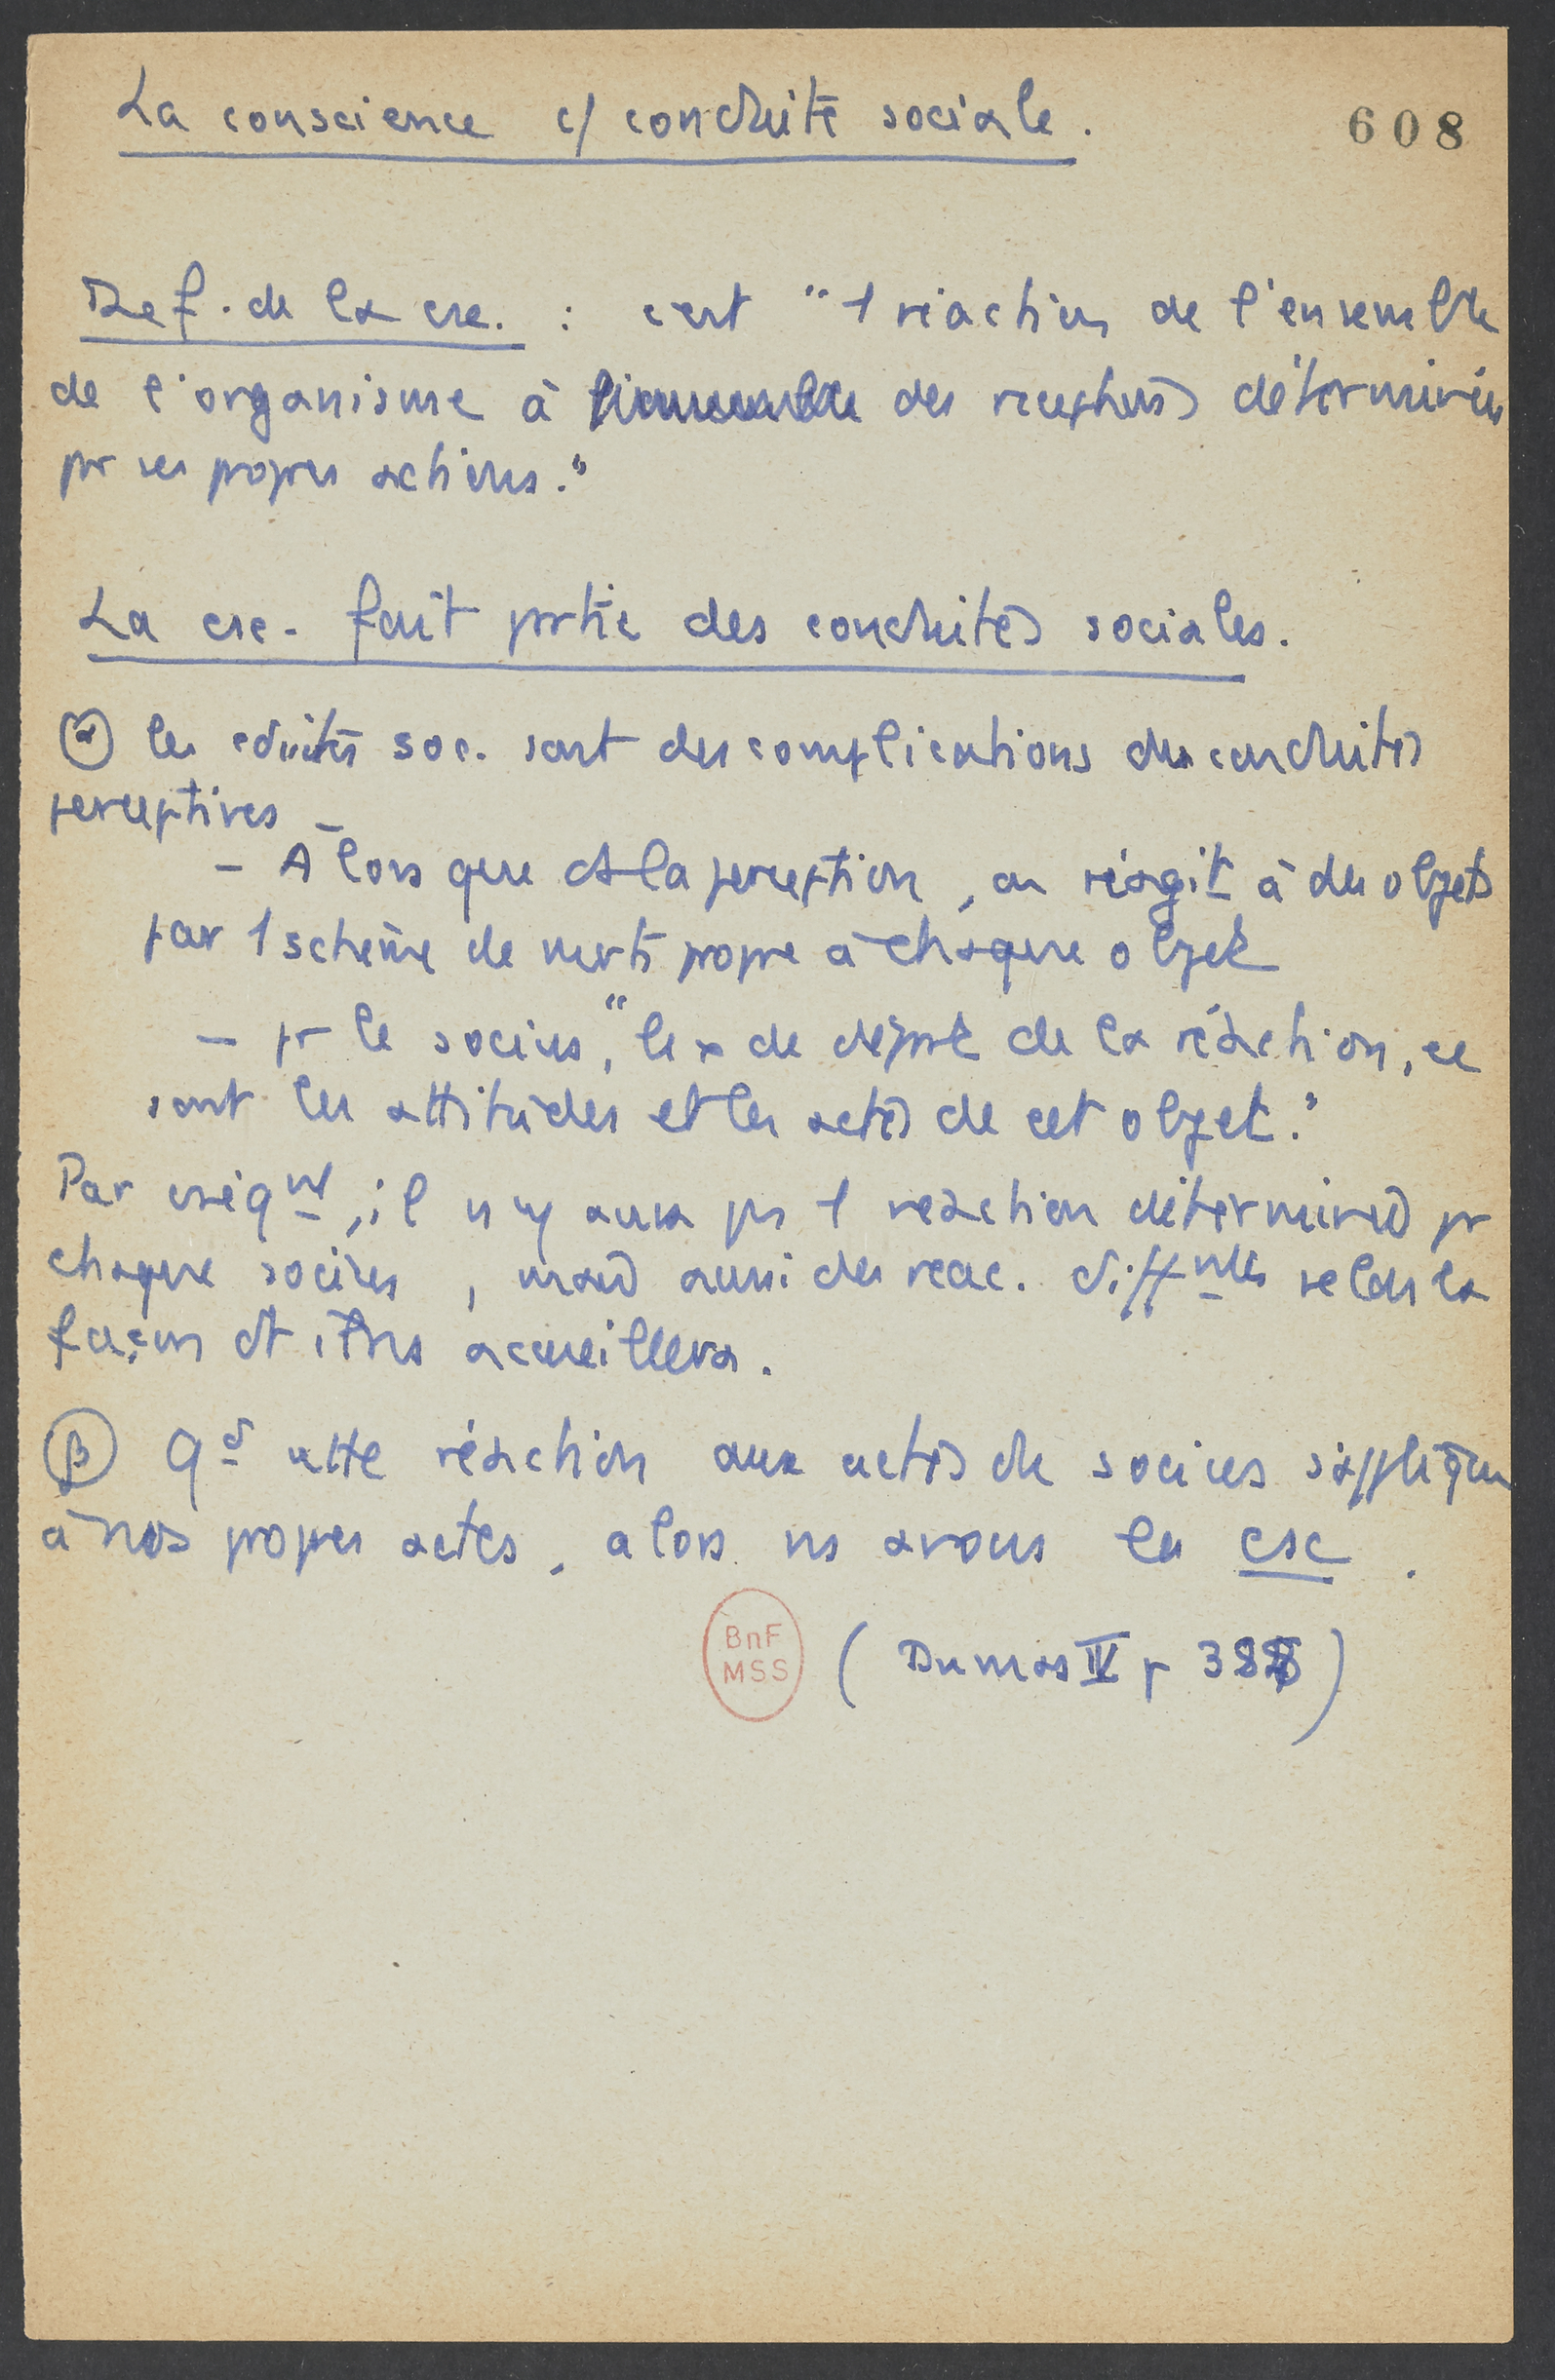 La conscience c/ conduite sociale.
608
Def. de la csc. : c'est "1 réaction de l'ensemble
de l'organisme à l'ensemble des réceptions déterminées
pr ses propres actions."
La csc. fait prtie des conduites sociales.
(α) les cduites soc. sont des complications des conduites
perceptives –
– Alors que ds la perception, on réagit à des objets
par 1 schème de mvts propre à chaque objet
– pr le socius, "le x de déprt de la réaction, ce
sont les attitudes et les actes de cet objet."
Par cséqnt, il n'y aura ps 1 réaction déterminée pr
chaque socius, mais aussi des réac. diffntes selon la
façon dt il ns accueillera.
(β) Qd cette réaction aux actes de socius s'applique
à nos propres actes, alors ns avons la csc.
BnF
MSS
(Dumas IV p